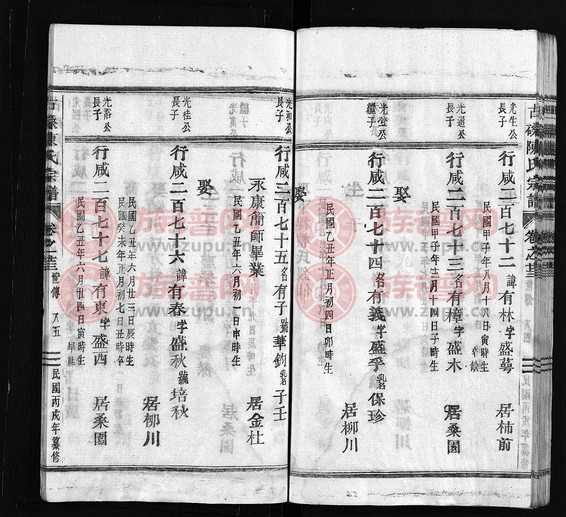 古磉陳氏宗譜
卷之
光生公
長子
行咸二百七十二諱有林字盛蕚 居柿前
民國甲子年八月十六日寅時生
光迴公
長子
行咸二百七十三名有樟字盛木 居桑園
民國甲子年十二月初四日子時生
娶
光堂公
繼子
行咸二百七十四名有義字盛孚乳名保珍 居柳川
民國乙丑年正月初四日卯時生
娶
長子
行咸二百七十五名有子號華鈞乳名子壬 居金杜
永康簡師畢業
民國乙丑年六月初一日申時生
娶
光桂公
長子
行咸二百七十六諱有春字盛秋號培秋 居柳川
民國乙丑年六月廿三日辰時生
民國癸未年正月初七日丑時卒
光裕公
長子
行咸二百七十七諱有東字盛西 居桑園
民國乙丑年六月廿四日寅時生
陳氏宗譜
卷之
八五
民國丙戌年纂修
族譜网
www.zupu.cn